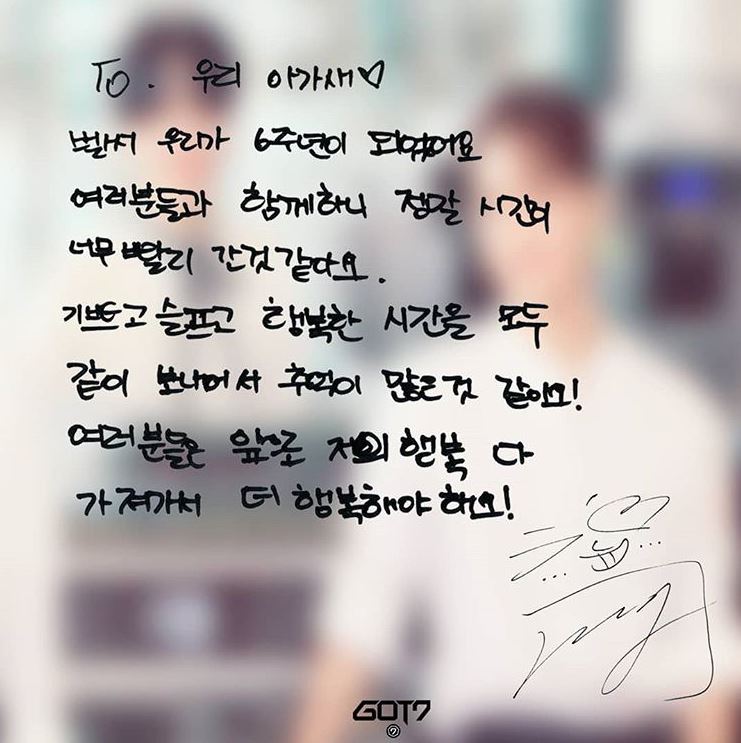 To. 우리 아가새♡
벌써 우리가 6주년이 되었어요
여러분들과 함께하니 정말 시간이
너무 빨리 간것같아요.
기쁘고 슬프고 행복한 시간을 모두
같이 보내어서 추억이 많은것 같아요!
여러분들은 앞으로 저의 행복 다
가져가서 더 행복해야 해요!
GOT7